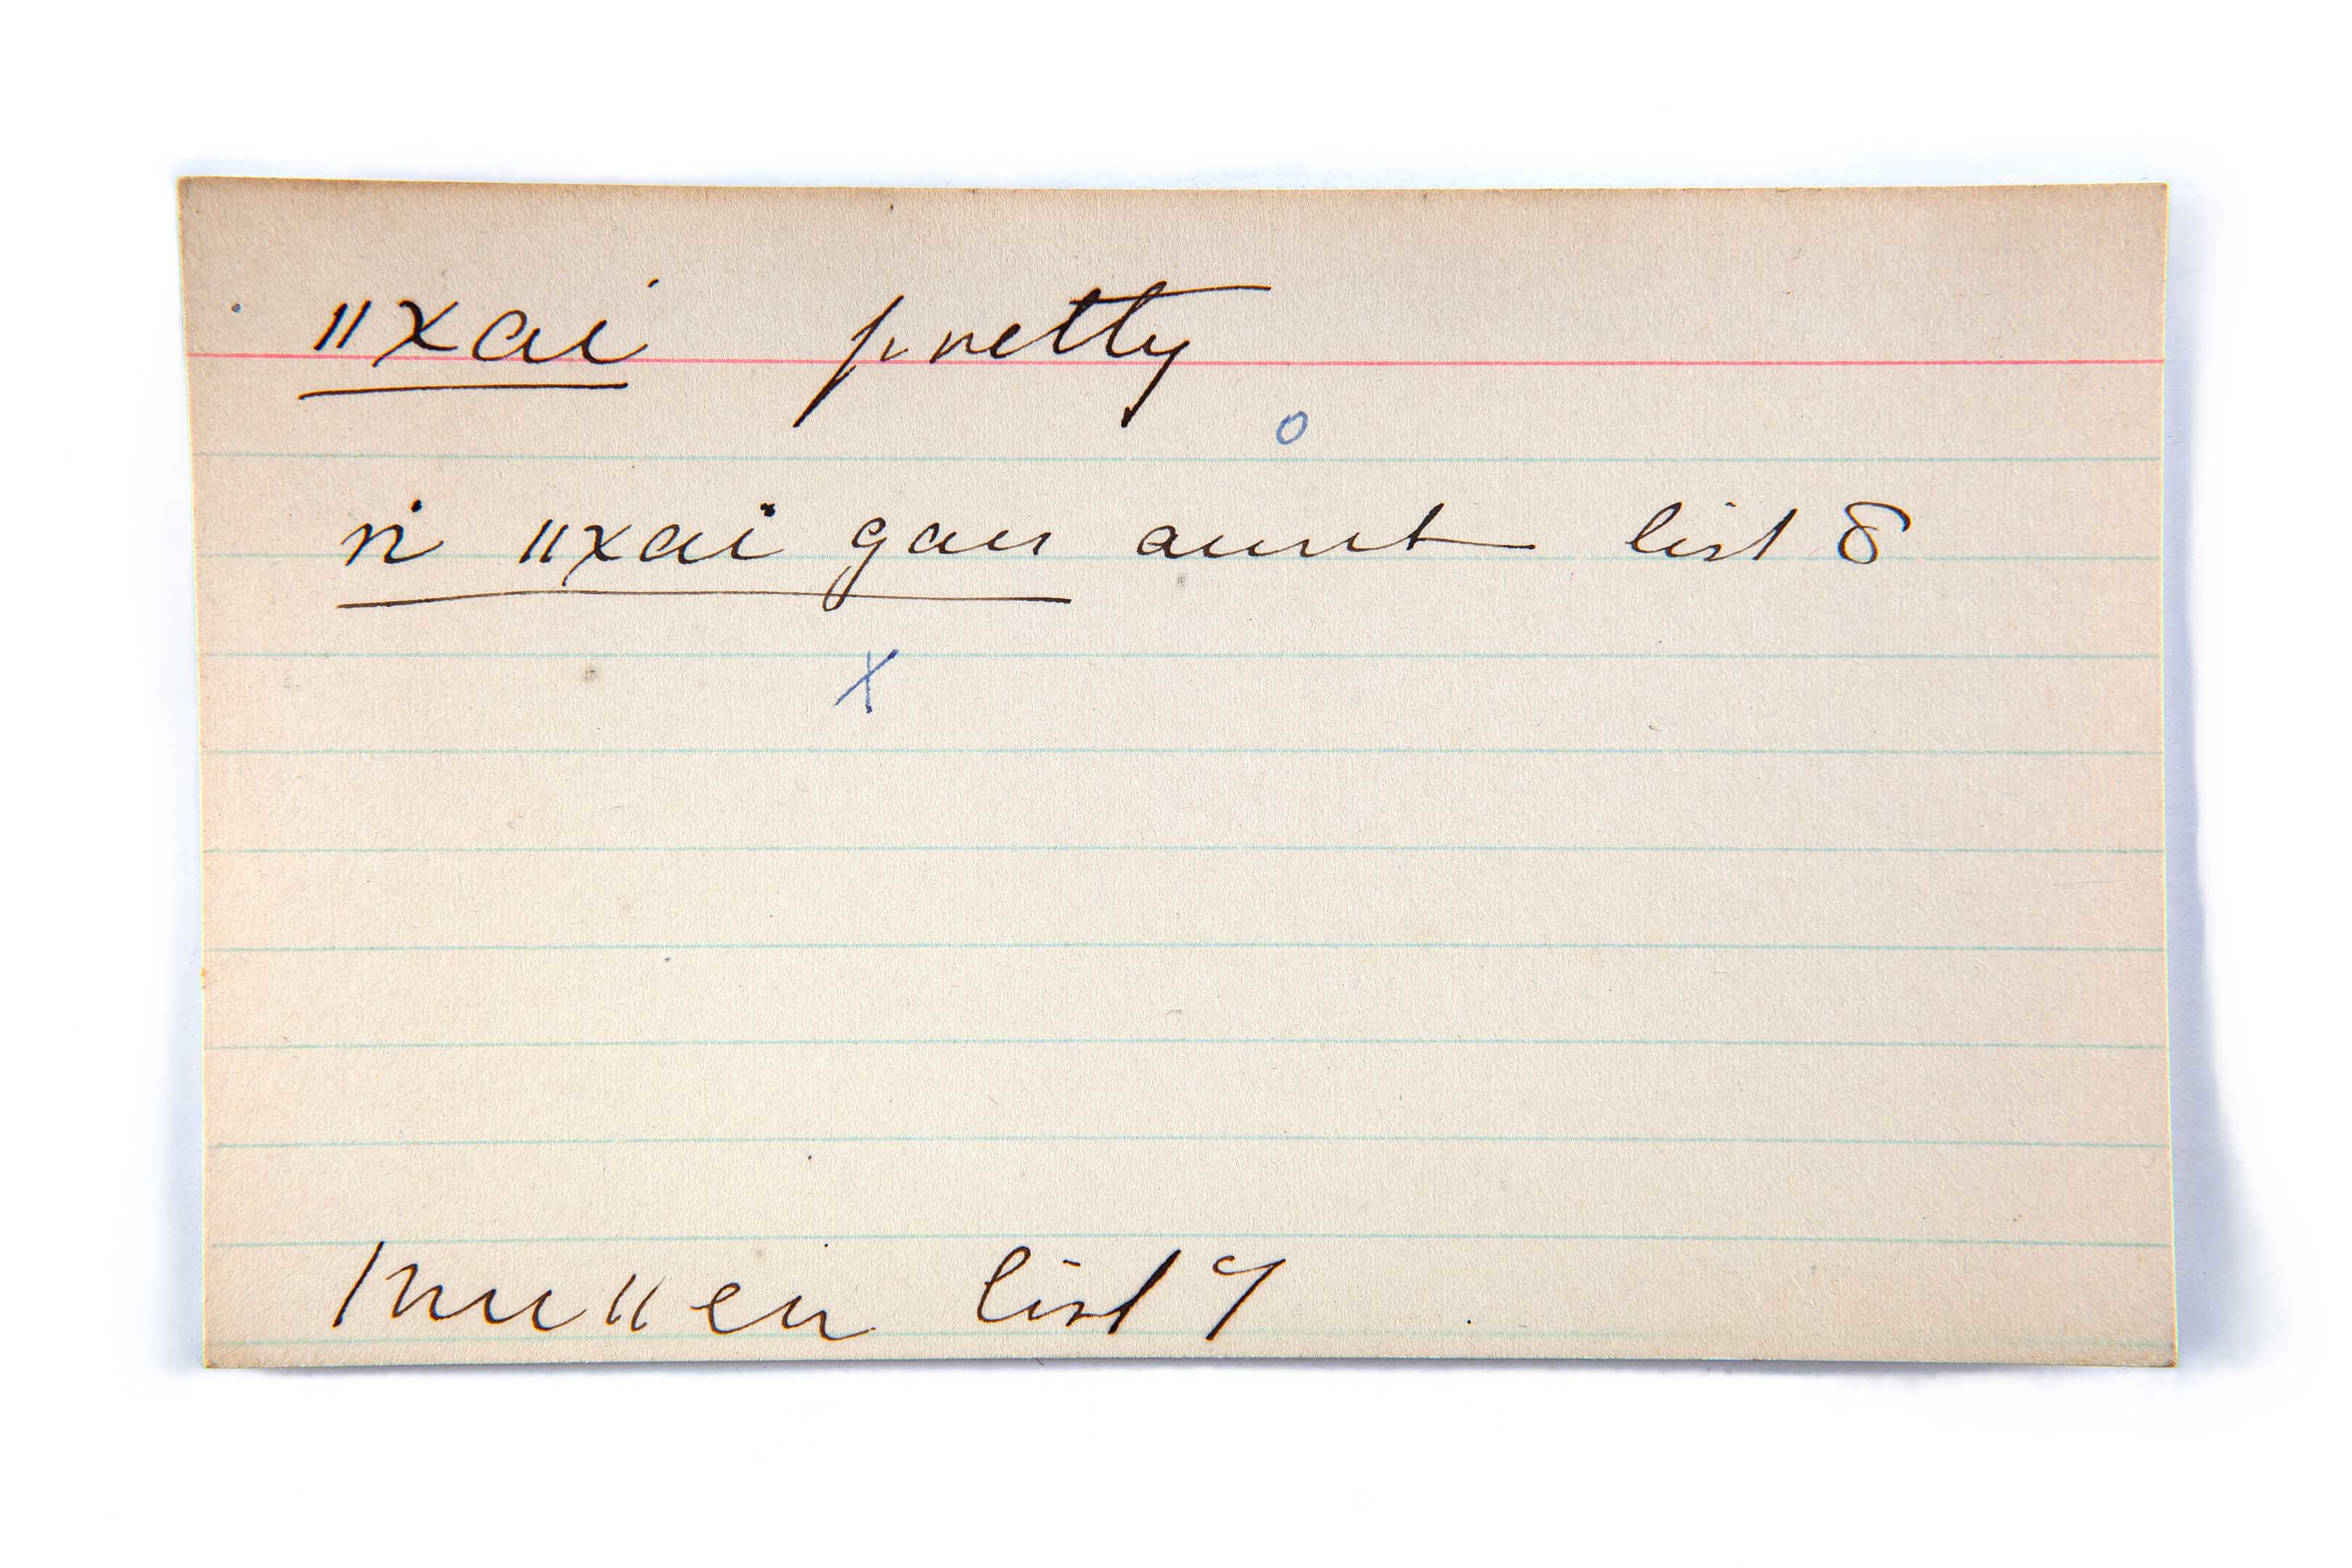 ǁxai pretty
o
ṅ ǁxai gan aunt list 8
x
ǀnuǁen list 9